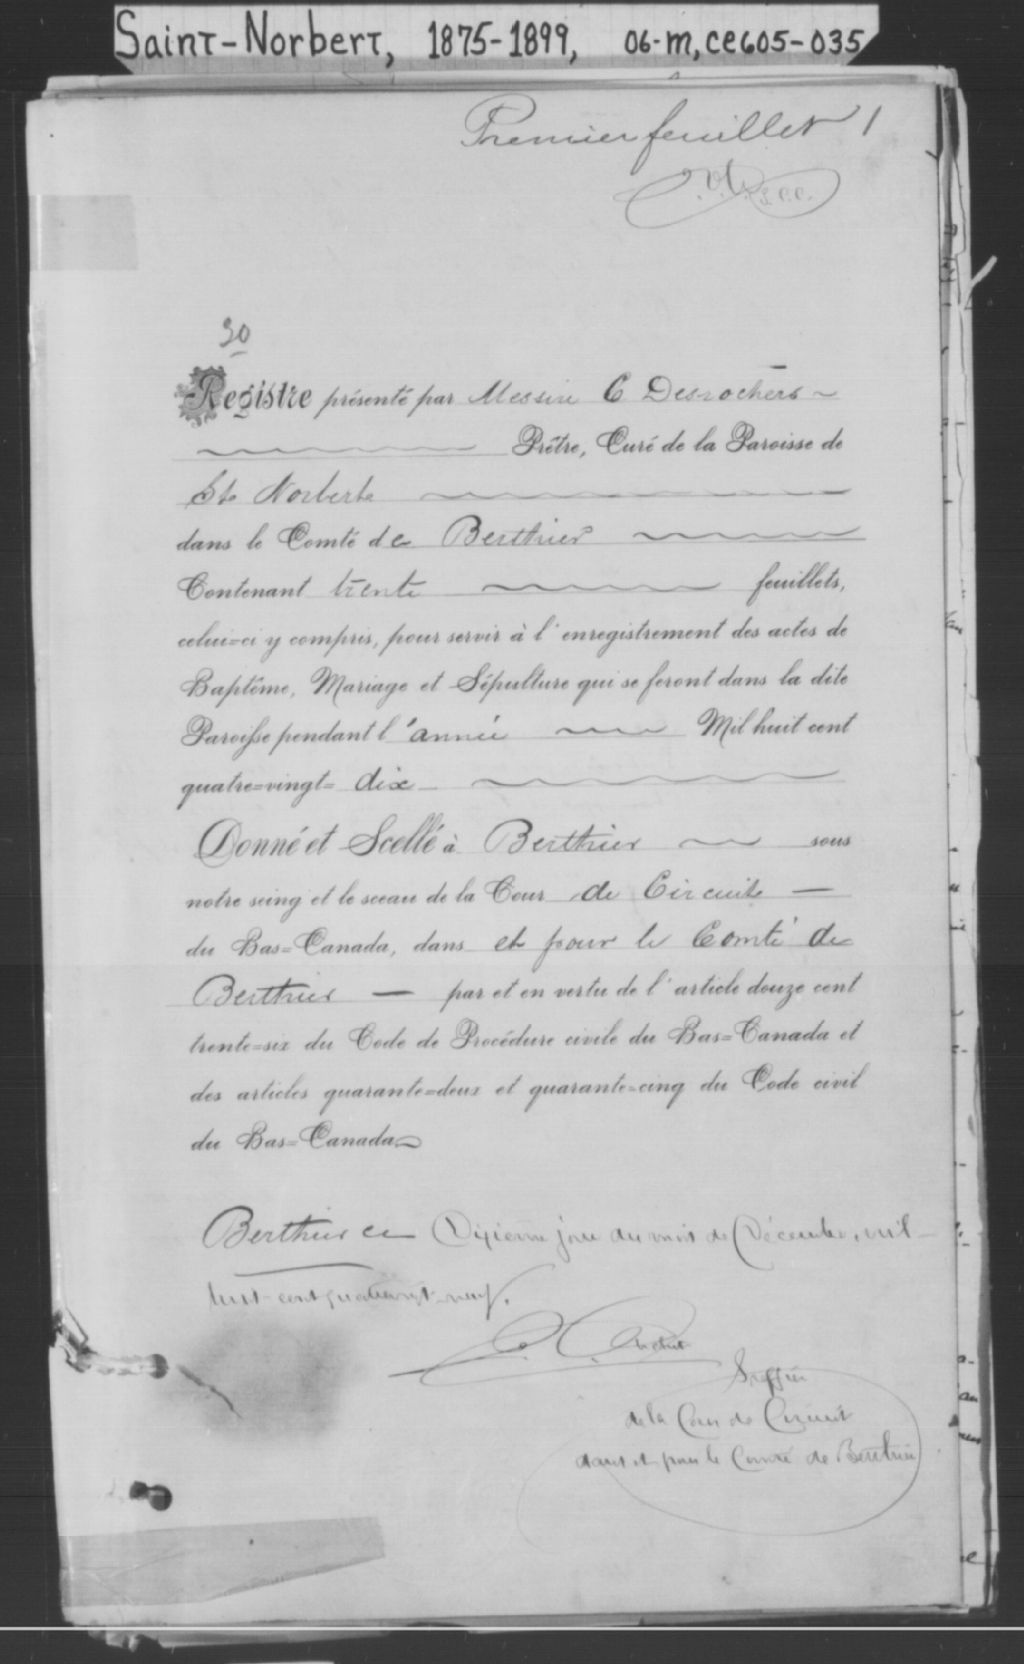 Saint-Norbert, 1875-1899, 06-m, ce605-035
Premier feuillet 1
G.C.C.
90
Registre présenté par Messire C Desrochers
Prêtre, Curé de la Paroisse de
St Norbert
dans le Comté de Berthier
Contenant trente feuillets,
celui=ci y compris, pour servir à l'enregistrement des actes de
Baptême, Mariage et Sépulture qui se feront dans la dite
Paroisse pendant l'année Mil huit cent
quatre=vingt= dix
Donné et Scellé à Berthier sous
notre seing et le sceau de la Cour de Circuit
du Bas=Canada, dans et pour le Comté de
Berthier par et en vertu de l'article douze cent
trente=six du Code de Procédure civile du Bas=Canada et
des articles quarante=deux et quarante=cinq du Code civil
du Bas=Canada
Berthier ce Dixième jour du mois de Décembre, mil
huit cent quatrevingt-neuf.
Greffier
de la Cour de Circuit
dans et pour le Comté de Berthier